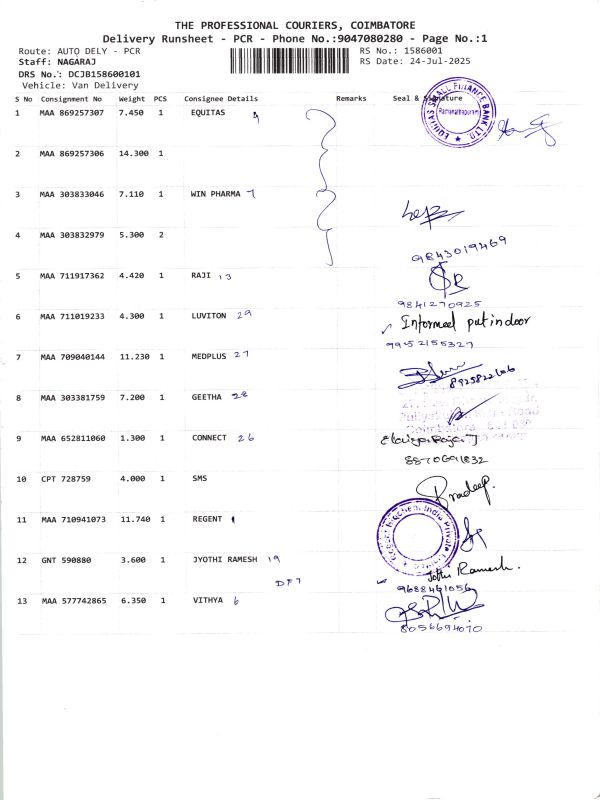 THE PROFESSIONAL COURIERS, COIMBATORE
Delivery Runsheet - PCR - Phone No.:9047080280 - Page No.:1
Route: AUTO DELY - PCR RS No.: 1586001
Staff: NAGARAJ RS Date: 24-Jul-2025
DRS No.: DCJB158600101
Vehicle: Van Delivery
S No Consignment No Weight PCS Consignee Details Remarks Seal & Signature
1 MAA 869257307 7.450 1 EQUITAS
EQUITAS SMALL FINANCE BANK LTD.
Ramanathapuram
2 MAA 869257306 14.300 1
3 MAA 303833046 7.110 1 WIN PHARMA 7
4 MAA 303832979 5.300 2
9843019469
5 MAA 711917362 4.420 1 RAJI 13
9841270925
6 MAA 711019233 4.300 1 LUVITON 29 Informeel put in door
9952155327
7 MAA 709040144 11.230 1 MEDPLUS 27
8 MAA 303381759 7.200 1 GEETHA 28
Coimbatore
9 MAA 652811060 1.300 1 CONNECT 26
8870691832
10 CPT 728759 4.000 1 SMS Pradeep.
11 MAA 710941073 11.740 1 REGENT
12 GNT 590880 3.600 1 JYOTHI RAMESH 19 Jothi Ramesh.
DF7
9688491056
13 MAA 577742865 6.350 1 VITHYA 6
8056694070